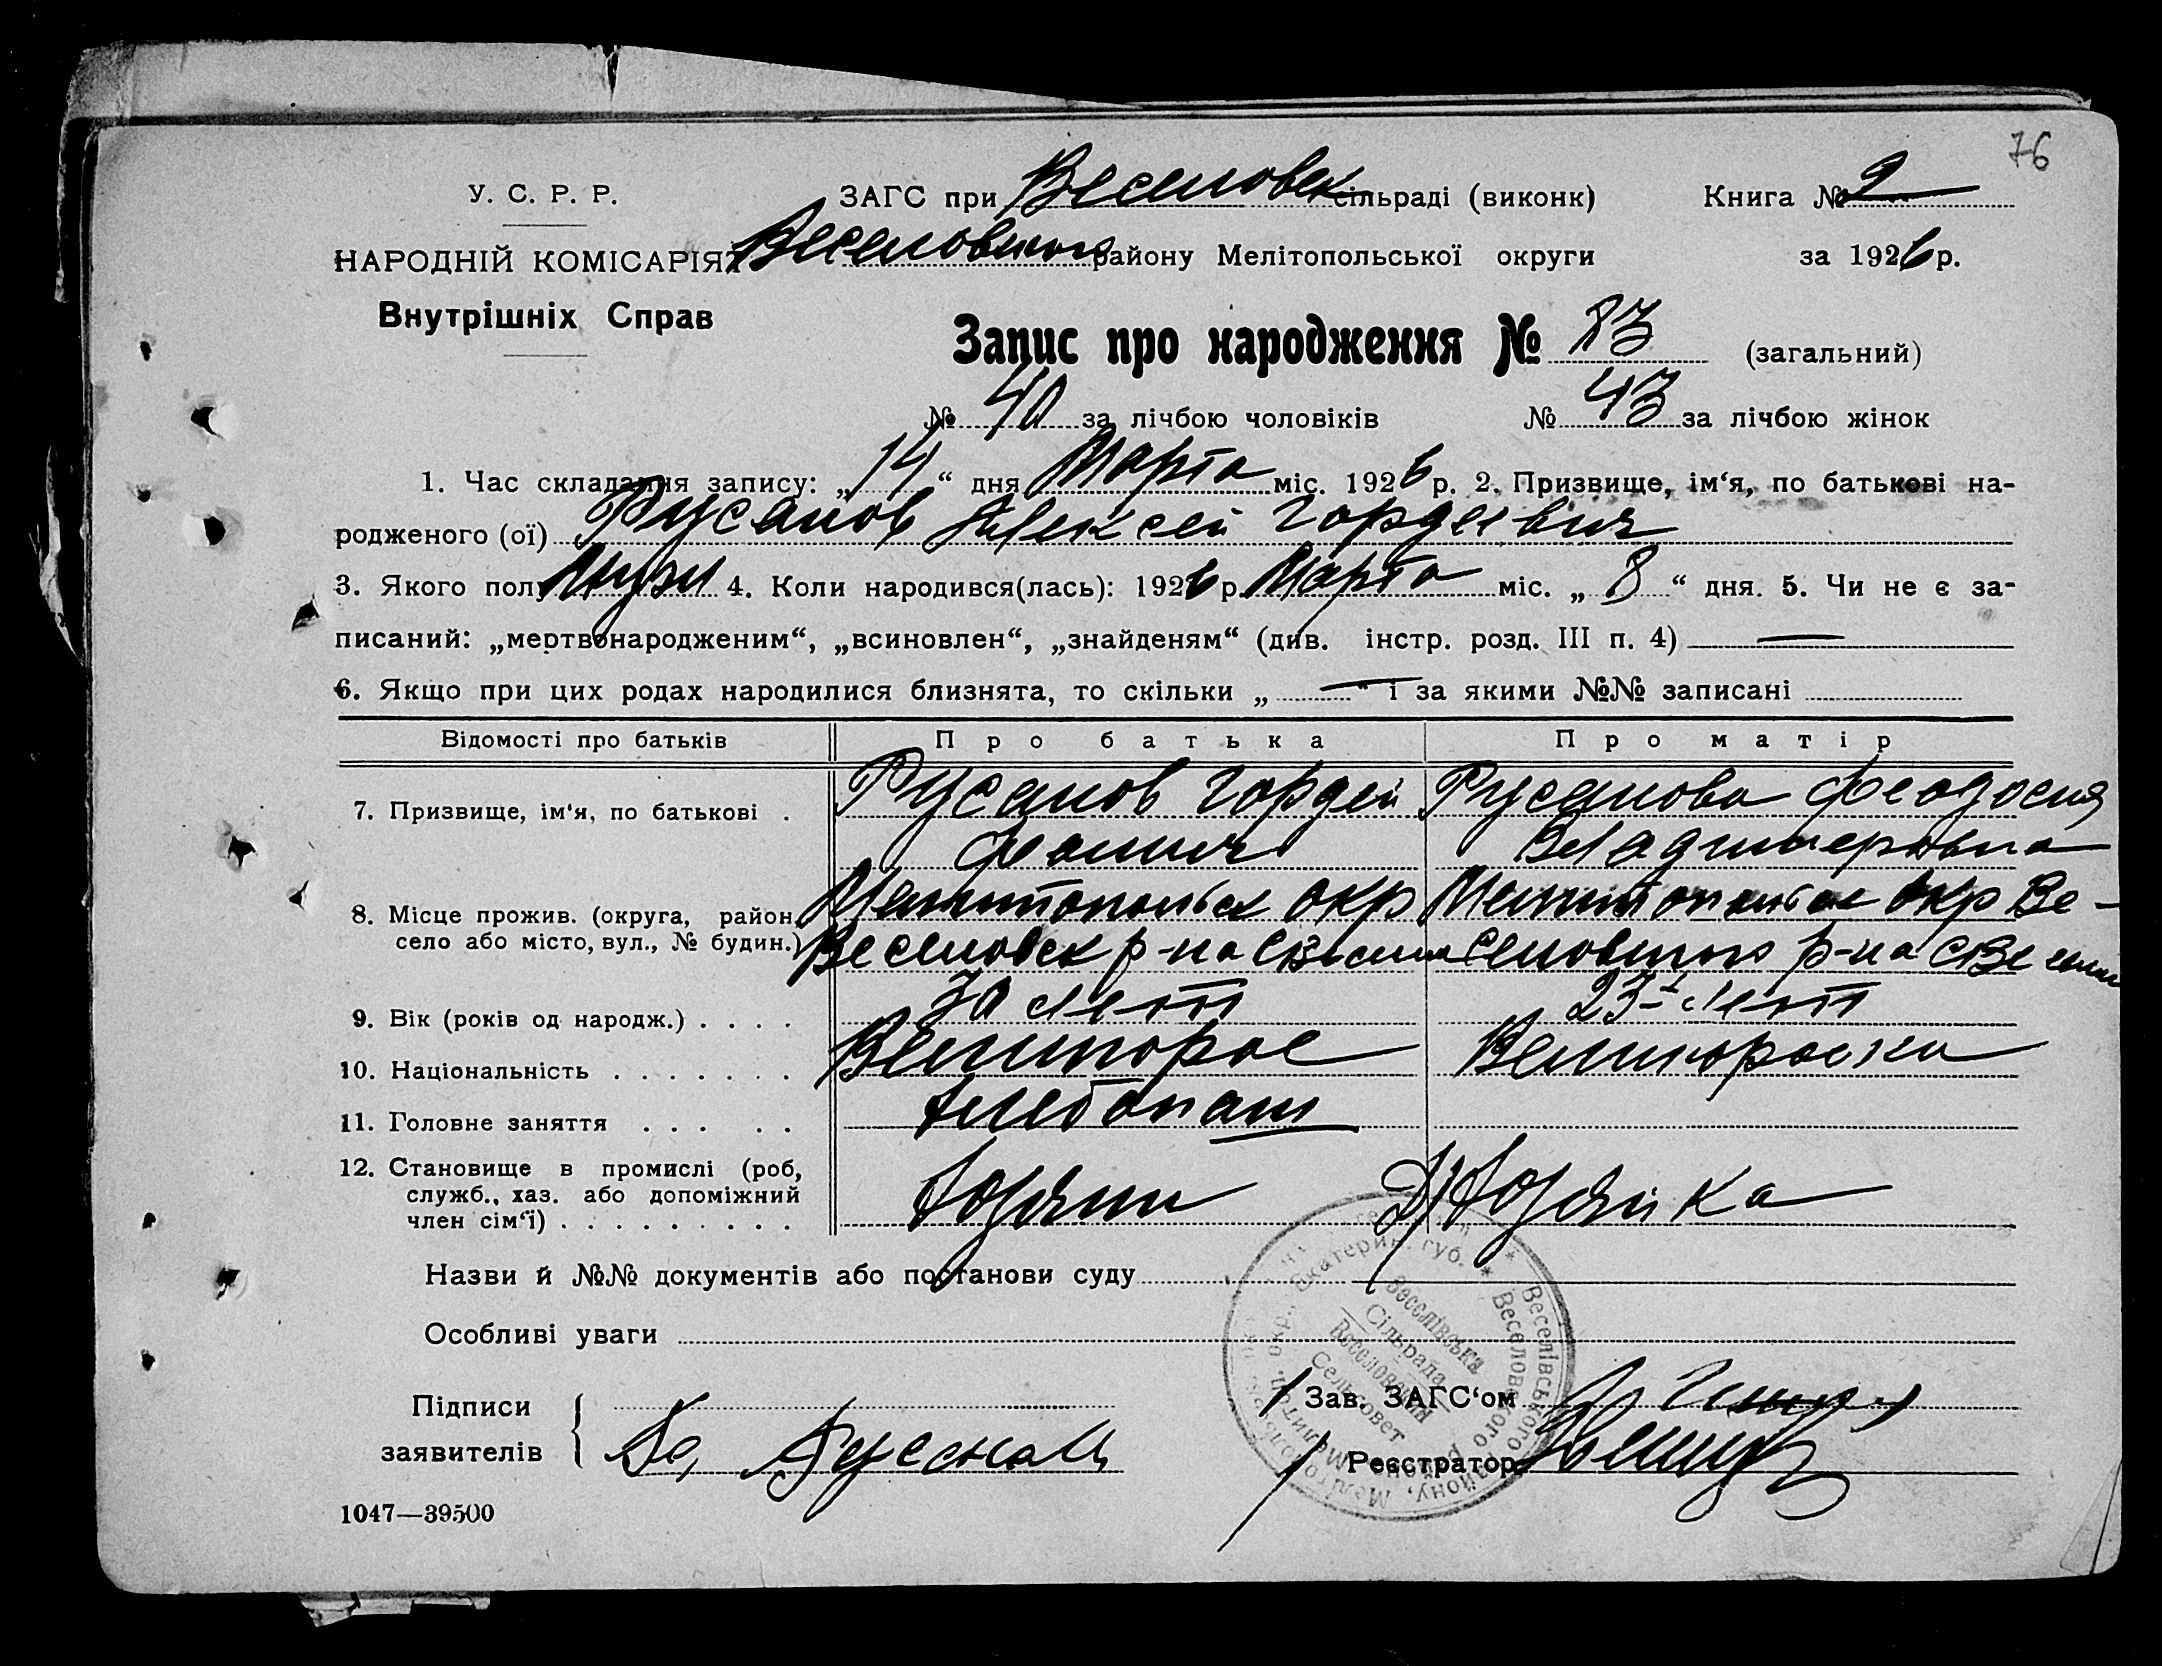 76
У. С. Р. Р.
ЗАГС при Веселовск сільраді (виконк) Книга № 2
НАРОДНІЙ КОМІСАРІЯТ Веселовского району Мелітопольської округи за 1926 р.
Внутрішніх Справ
Запис про народження № 83 (загальний)
№ 40 за лічбою чоловіків № 43 за лічбою жінок
1. Час складання запису: „14“ дня Марта міс. 1926 р. 2. Призвище, ім‘я, по батькові на-
родженого (ої) Русанов Алексей Гордеевич
3. Якого полу Мужс 4. Коли народився(лась): 1926 р. Марта міс. „8“ дня. 5. Чи не є за-
писаний: „мертвонародженим“, „всиновлен“, „знайденям“ (див. інстр. розд. III п. 4) —
6. Якщо при цих родах народилися близнята, то скільки „ — “ і за якими №№ записані
Відомості про батьків Про батька Про матір
7. Призвище, ім‘я, по батькові . Русанов Гордей Русанова Феодосия
Фомич Владимеровна
8. Місце прожив. (округа, район, Мелитопольск окр Мелитопольск окр Ве-
село або місто, вул., № будин.) Веселовск р-на селовского р-на
9. Вік (років од народж.) . . . . 30 лет 23 лет
10. Національність . . . . . . . Великорос Великороска
11. Головне заняття . . . . . Хлебопаш
12. Становище в промислі (роб,
служб., хаз. або допоміжний
член сім‘ї) . . . . . . . . . Хозяин Хозяйка
Назви й №№ документів або постанови суду
Особливі уваги
Підписи
заявителів
Зав. ЗАГС‘ом
Реєстратор
Веселівська
Сільрада
Веселовский
Сельсовет
1047—39500